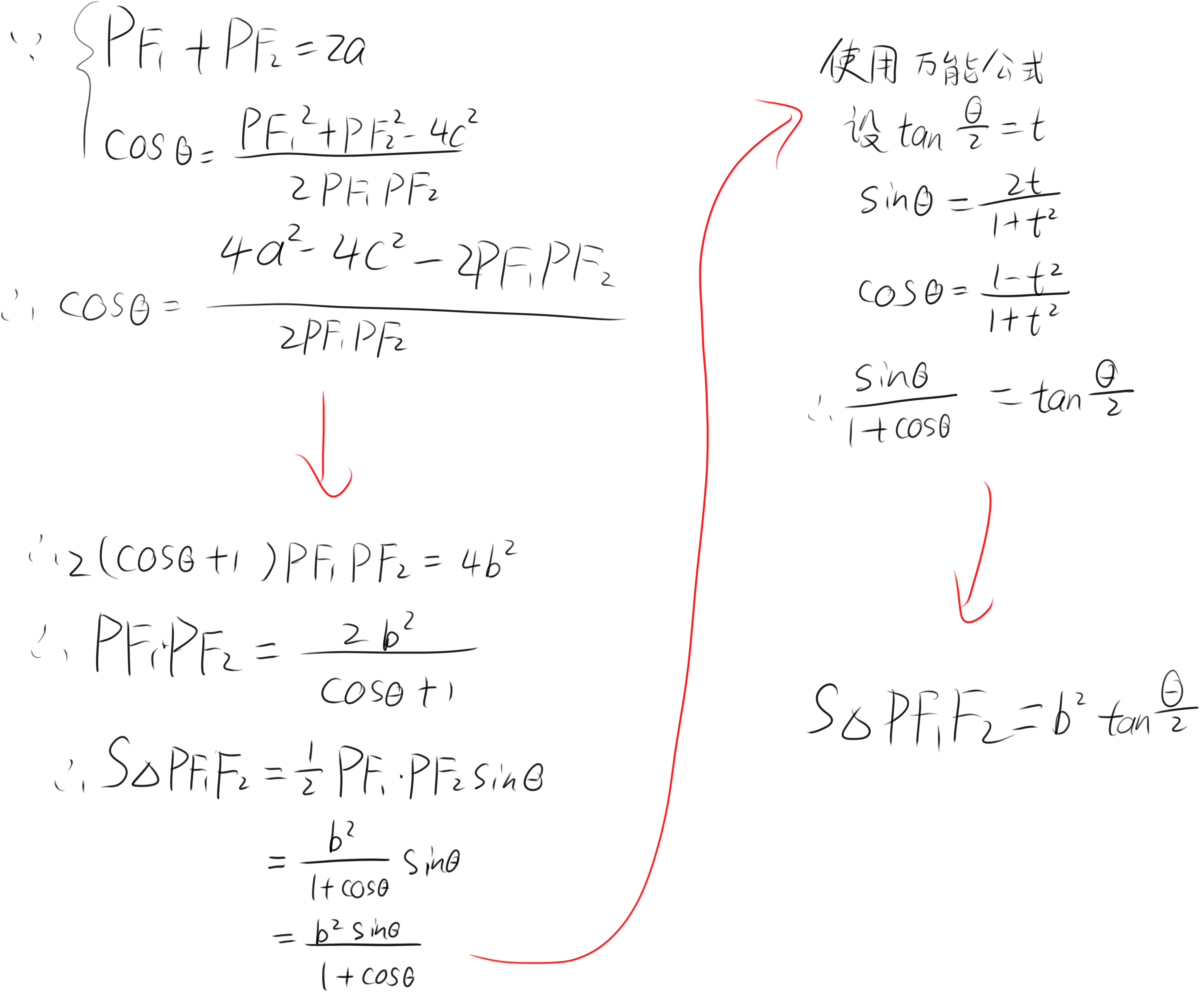 ∵ { PF₁ + PF₂ = 2a
cosθ = (PF₁² + PF₂² - 4c²) / (2PF₁PF₂)
∴ cosθ = (4a² - 4c² - 2PF₁PF₂) / (2PF₁PF₂)
∴ 2(cosθ+1)PF₁PF₂ = 4b²
∴ PF₁·PF₂ = 2b² / (cosθ+1)
∴ S△PF₁F₂ = 1/2 PF₁·PF₂ sinθ
= b² / (1+cosθ) sinθ
= b² sinθ / (1+cosθ)
使用万能公式
设 tan θ/2 = t
sinθ = 2t / (1+t²)
cosθ = (1-t²) / (1+t²)
∴ sinθ / (1+cosθ) = tan θ/2
S△PF₁F₂ = b² tan θ/2